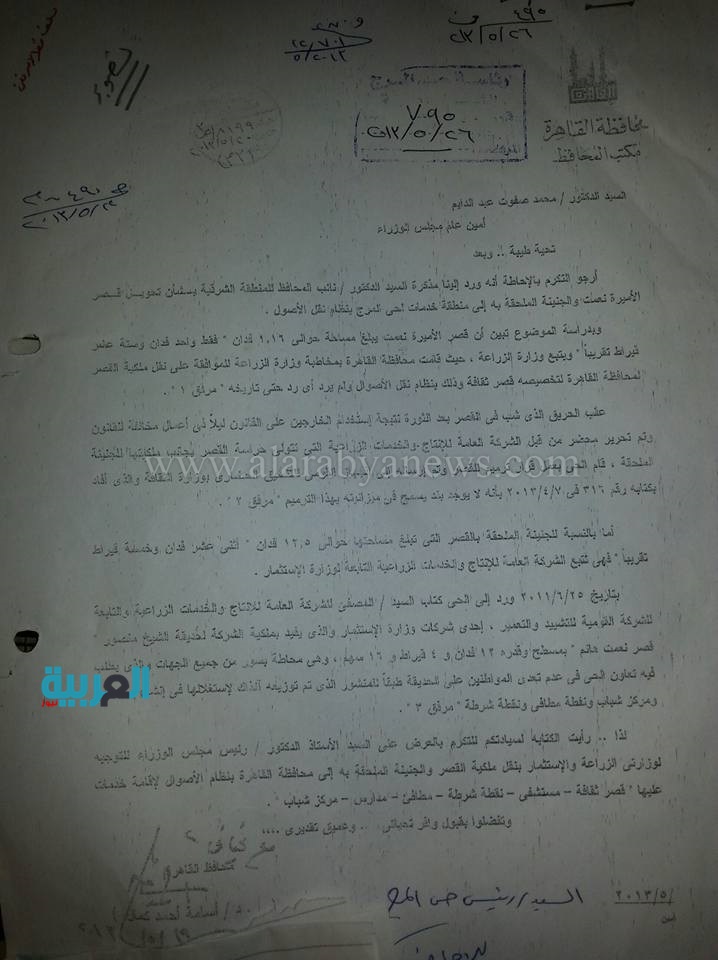 ٤٩٠
٢٠١٣/٥/٢٦
تصوير
٧٠٩٥
٢٠١٣/٥/٢٦
محافظة القاهرة
مكتب المحافظ
السيد الدكتور / محمد صفوت عبد الدايم
أمين عام مجلس الوزراء
تحية طيبة .. وبعد
أرجو التكرم بالإحاطة أنه ورد إلينا مذكرة السيد الدكتور / نائب المحافظ للمنطقة الشرقية بشأن تحويل قصر
الأميرة نعمت والجنينة الملحقة به إلى منطقة خدمات لحى المرج بنظام نقل الأصول .
وبدراسة الموضوع تبين أن قصر الأميرة نعمت يبلغ مساحة حوالى ١.١٦ فدان " فقط واحد فدان وستة عشر
قيراط تقريباً " ويتبع وزارة الزراعة ، حيث قامت محافظة القاهرة بمخاطبة وزارة الزراعة للموافقة على نقل ملكية القصر
لمحافظة القاهرة لتخصيصه قصر ثقافة وذلك بنظام نقل الأصوال ولم يرد أى رد حتى تاريخه " مرفق ١ " .
عقب الحريق الذى شب فى القصر بعد الثورة نتيجة إستخدام الخارجين على القانون ليلاً فى أعمال مخالفة للقانون
وتم تحرير محضر من قبل الشركة العامة للإنتاج والخدمات الزراعية التى تتولى حراسة القصر بجانب ملكيتها للجنينة
الملحقة ، قام الحى بعمل قرار ترميم للقصر وتم إرساله إلى الجهاز القومى للتنسيق الحضارى بوزارة الثقافة والذى أفاد
بكتابه رقم ٣١٦ فى ٢٠١٣/٤/٧ بأنه لا يوجد بند يسمح فى ميزانيته بهذا الترميم " مرفق ٢ " .
www.alarabyanews.com
أما بالنسبة للجنينة الملحقة بالقصر التى تبلغ مساحتها حوالى ١٢.٥ فدان " أثنى عشر فدان وخمسة قيراط
تقريباً " فهى تتبع الشركة العامة للإنتاج والخدمات الزراعية التابعة لوزارة الإستثمار .
بتاريخ ٢٠١١/٦/٢٥ ورد إلى الحى كتاب السيد / المصفى للشركة العامة للإنتاج والخدمات الزراعية والتابعة
للشركة القومية للتشييد والتعمير ، إحدى شركات وزارة الإستثمار والذى يفيد بملكية الشركة لحديقة الشيخ منصور "
قصر نعمت هانم " بمسطح وقدره ١٢ فدان و ٤ قيراط و ١٦ سهم ، وهى محاطة بسور من جميع الجهات والذى يطلب
العربية
نيوز
فيه تعاون الحى فى عدم تعدى المواطنين على الحديقة طبقاً للمنشور الذى تم توزيعه آنذاك لإستغلالها فى
ومركز شباب ونقطة مطافى ونقطة شرطة " مرفق ٣ " .
لذا .. رأيت الكتابة لسيادتكم للتكرم بالعرض على السيد الأستاذ الدكتور / رئيس مجلس الوزراء للتوجيه
لوزارتى الزراعة والإستثمار بنقل ملكية القصر والجنينة الملحقة به إلى محافظة القاهرة بنظام الأصوال لإقامة خدمات
عليها " قصر ثقافة – مستشفى – نقطة شرطة – مطافئ – مدارس – مركز شباب " .
وتفضلوا بقبول وافر تحياتى ... وعميق تقديرى ،،،،
محافظ القاهرة
د / أسامة أحمد كمال
/٢٠١٣/٥
السيد / رئيس حى المرج